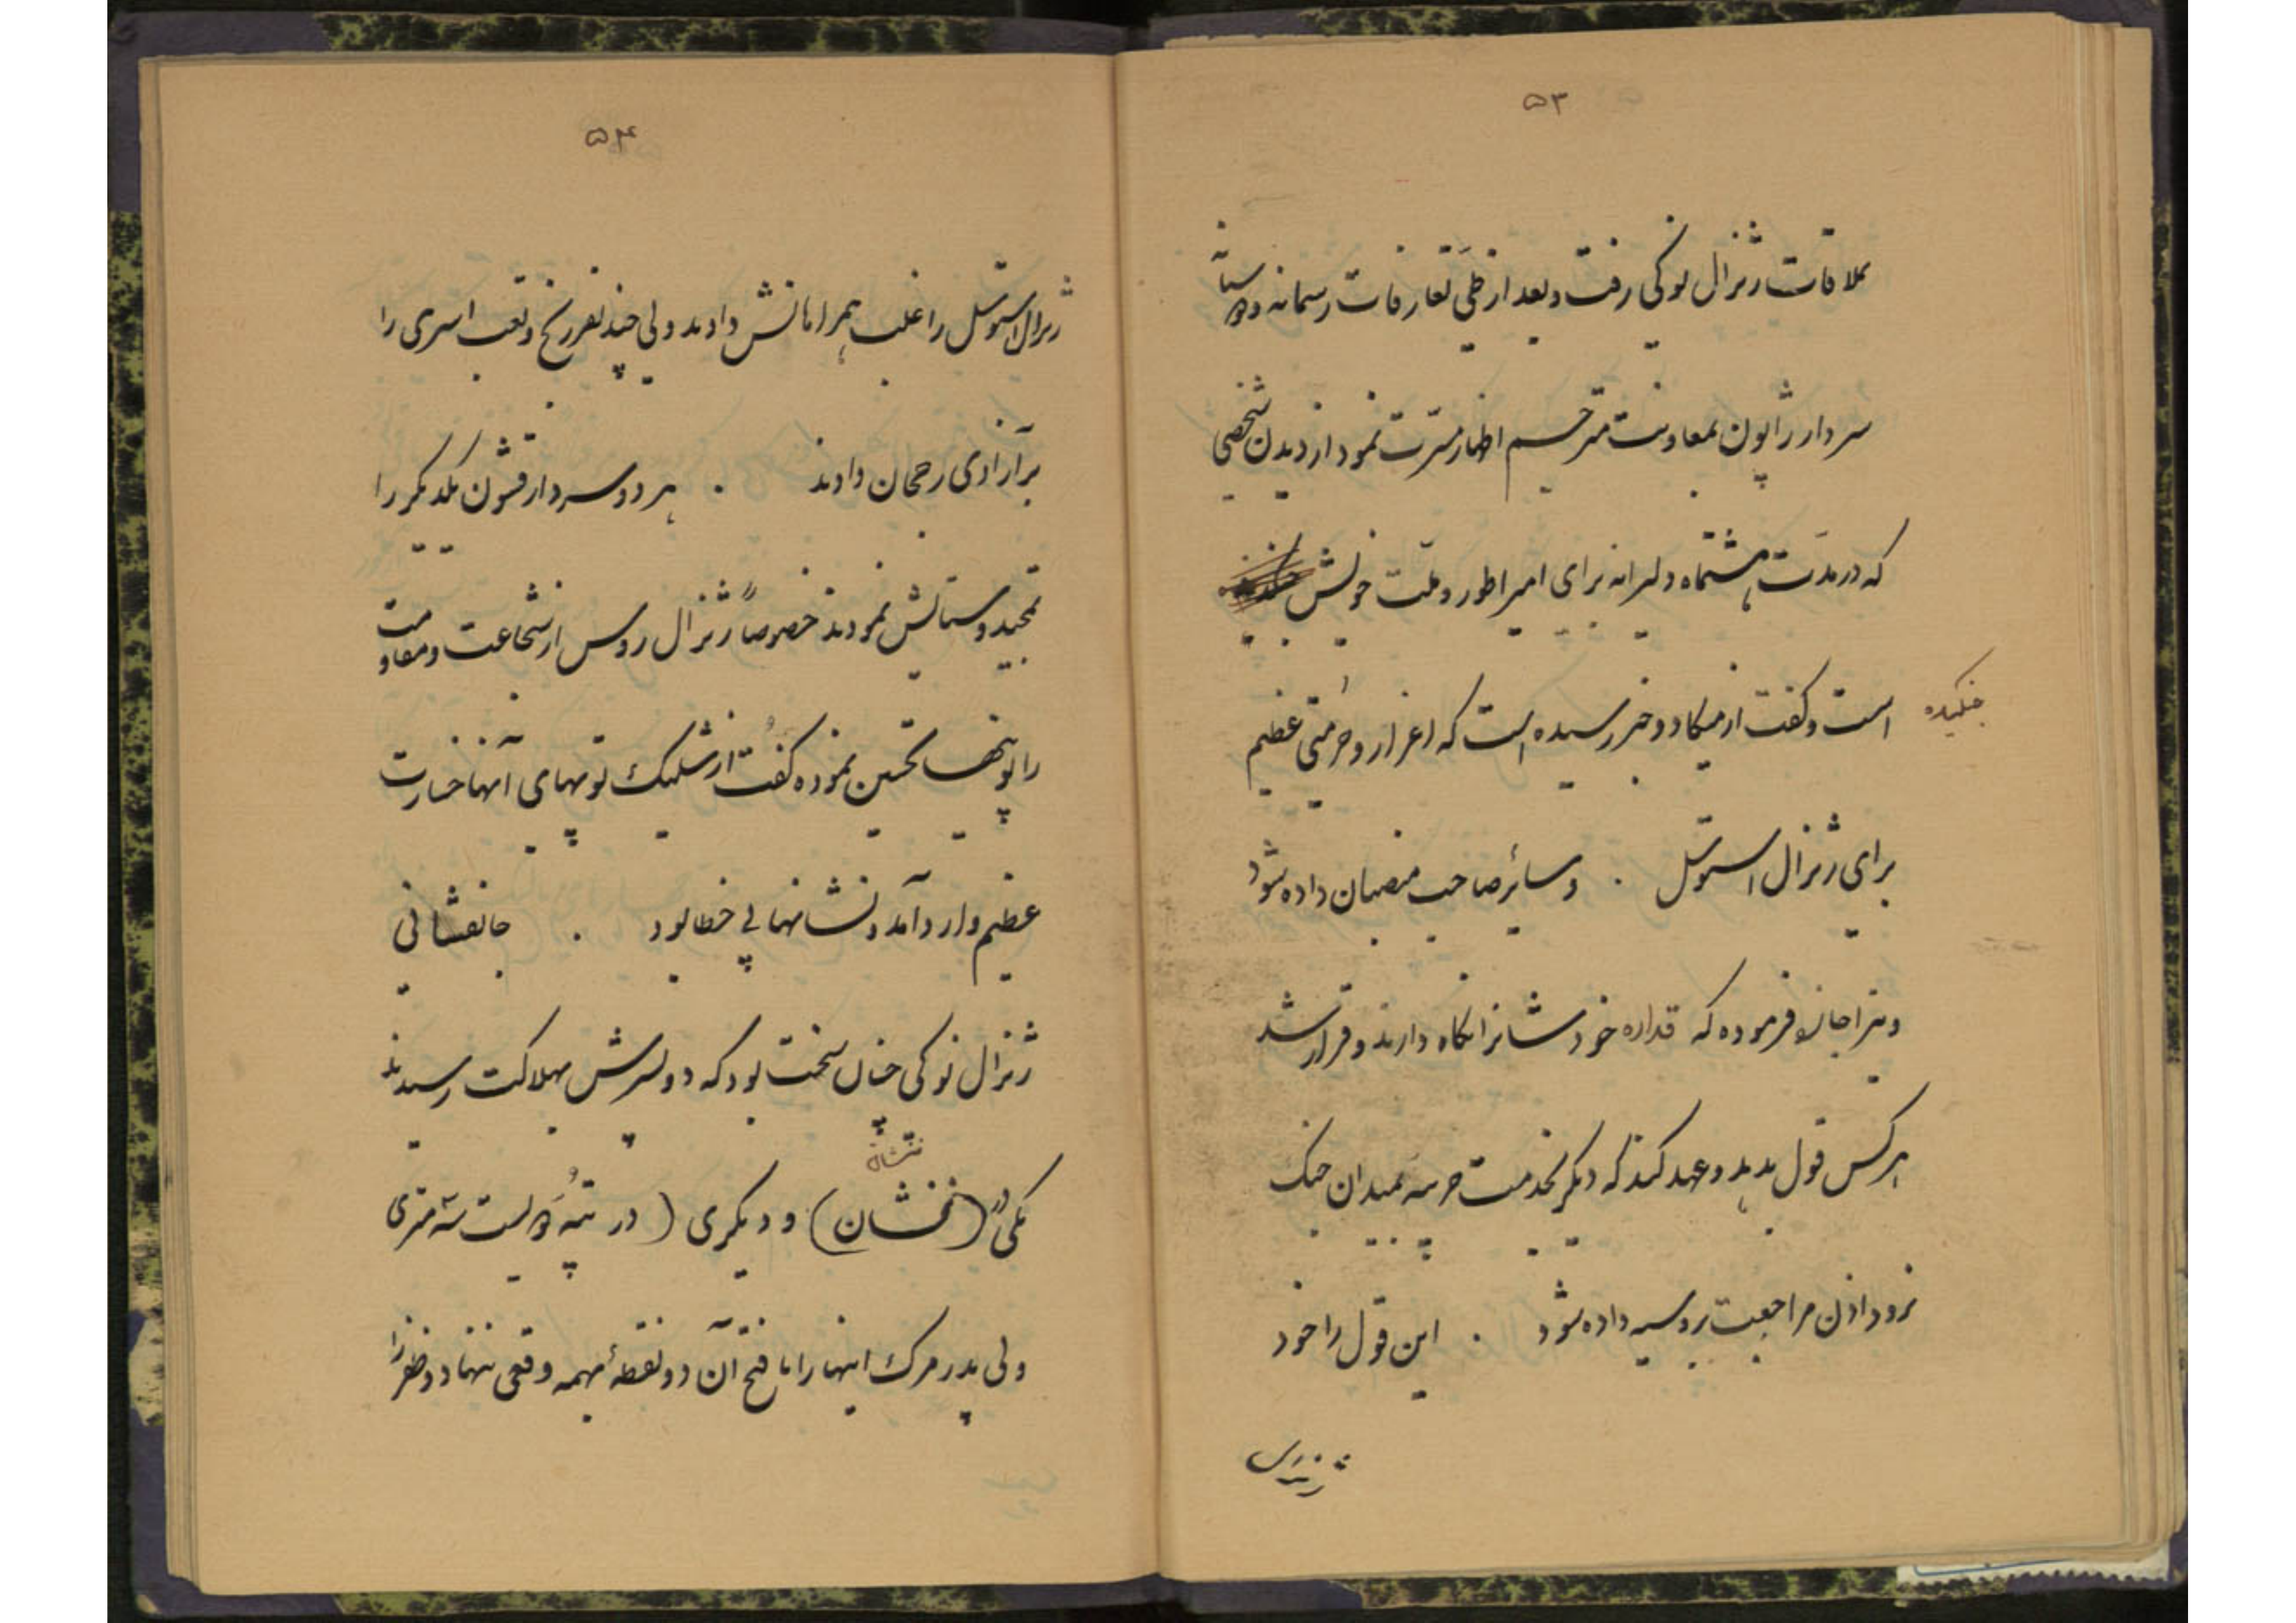 ۵۳
بملاقات ژنرال نوکی رفت و بعد از طی تعارفات رسمانه و دوستانه
سردار ژاپون بمعاونت مترجم اظهار مسرّت نمود از دیدن شخصی
که در مدّت هشتماه دلیرانه برای امپراطور و ملّت خویش
جنگیده
است و گفت از میکادو خبر رسیده است که اعزاز و حرمتی عظیم
برای ژنرال استوسل . و سائر صاحب منصبان داده شود
و نیز اجازه فرموده که قداره خودشانرا نگاه دارند و قرار شد
هر کس قول بدهد و عهد کند که دیگر بخدمت حربیه بمیدان جنگ
نرود اذن مراجعت بروسیه داده شود . این قول را خود
۵۴
ژنرال استوسل را غلب همراهانش دادند ولی چند نفر رنج و تعب اسری را
بر آزادی رجحان دادند . هر دو سردار قشون یکدیگر را
تمجید و ستایش نمودند خصوصاً ژنرال روس از شجاعت و مقاومت
ژاپونیها تحسین نموده گفت از شلیک توپهای آنها خسارت
عظیم وارد آمد و نشانها بی خطا بود . جانفشانی
ژنرال نوکی چنان سخت بود که دو پسرش بهلاکت رسیدند
یکی در (نخشان) و دیگری (در تپّه دویست سه متری
ولی پدر مرگ اینها را با فتح آن دو نقطهٔ مهمه وقعی ننهاد و ظفر را